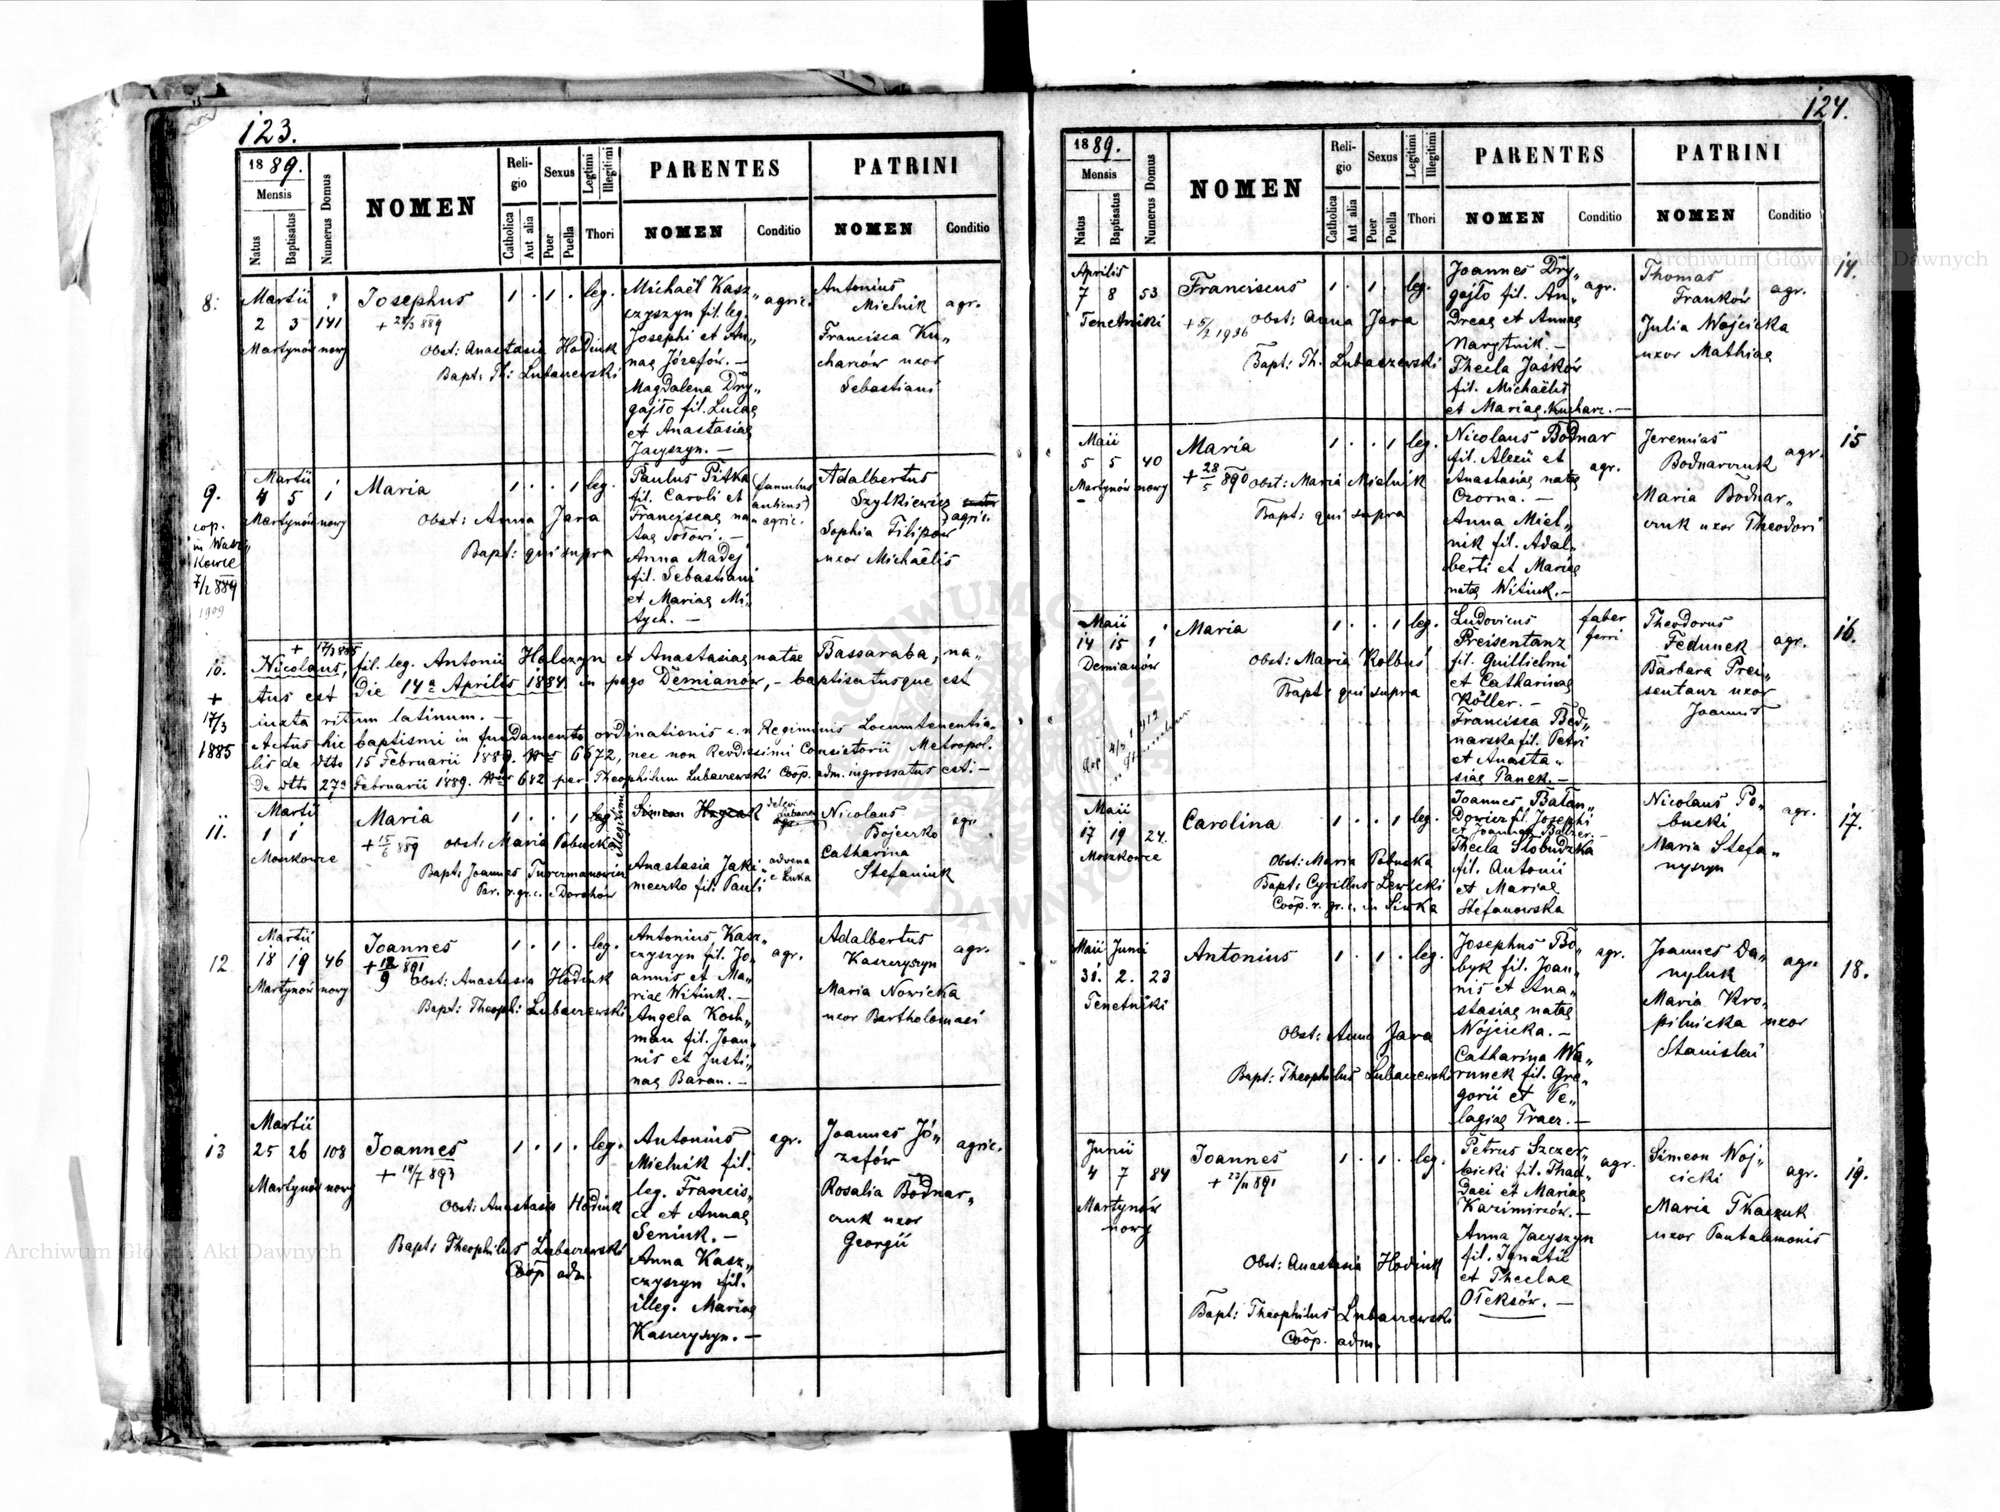 123.
1889.
Mensis
Natus
Baptisatus
Numerus Domus
NOMEN
Religio
Catholica
Aut alia
Sexus
Puer
Puella
Legitimi
Illegitimi
Thori
PARENTES
NOMEN
Conditio
PATRINI
NOMEN
Conditio
8.
Martii
2 3 141
Martynów nowy
Josephus
+ 28/3 889
Obst: Anastasia Hodiuk
Bapt: Th: Lubaczewski
1 . 1 . leg.
Michaël Kasz„
czyszyn fil. leg.
Josephi et An„
nae Józefów. —
Magdalena Dry„
gajło fil. Lucae
et Anastasiae
Jacyszyn. —
agric.
Antonius
Mielnik
agr.
Francisca Ku„
chariów uxor
Sebastiani
9.
cop.
1909
Martii
4 5 1
Martynów nowy
Maria
Obst: Anna Jara
Bapt: qui supra
1 . . 1 leg.
Paulus Pitka
fil. Caroli et
Franciscae na„
Anna Madej
fil. Sebastiani
et Mariae Mi„
agric.
Adalbertus
Szylkiewicz
agric.
Sophia Filipów
uxor Michaëlis
10.
+
17/3
1885
+ 17/3 885
Nicolaus, fil. leg. Antonii Halczyn et Anastasiae natae Bassaraba, na„
tus est die 14a Aprilis 1884 in pago Demianów, — baptisatusque est
iuxta ritum latinum. —
Actus hic baptismi in fundamento ordinationis c. r. Regiminis Locumtenentia„
lis de dtto 15 Februarii 1889. Nro 6672, nec non Revdissimi Consistorii Metropol.
de dtto 27a Februarii 1889. Nro 682 per Theophilum Lubaczewski Coop. adm. ingrossatus est. —
11.
Martii
1 1
Monkowce
Maria
+ 15/6 889
Obst: Maria Pobucka
Bapt: Joannes Turzmanowicz
Par. r. gr. c. e Dorohów
1 . . 1 leg.
Illegitimi
Simeon
Anastasia Jaki„
mecrko fil. Pauli
advena
e Łuka
Nicolaus
Bojeczko
agr.
Catharina
Stefaniuk
12
Martii
18 19 46
Martynów nowy
Joannes
+ 12/9 891
Obst: Anastasia Hodiuk
Bapt: Theoph: Lubaczewski
1 . 1 . leg.
Antonius Kasz„
czyszyn fil. Jo„
annis et Ma„
riae Witiuk. —
Angela Kosh„
man fil. Joan„
nis et Justi„
nae Baran. —
agr.
Adalbertus
Kaszczyszyn
agr.
Maria Nowicka
uxor Bartholomaei
13
Martii
25 26 108
Martynów nowy
Joannes
+ 18/7 893
Obst: Anastasia Hodiuk
Bapt: Theophilus Lubaczewski
Coop. adm.
1 . 1 . leg.
Antonius
Mielnik fil.
leg. Francis„
ci et Annae
Seniuk. —
Anna Kasz„
czyszyn fil.
illeg. Mariae
Kaszczyszyn. —
agr.
Joannes Jó„
zefów
agric.
Rosalia Bodnar„
czuk uxor
Georgii
124.
1889.
Mensis
Natus
Baptisatus
Numerus Domus
NOMEN
Religio
Catholica
Aut alia
Sexus
Puer
Puella
Legitimi
Illegitimi
Thori
PARENTES
NOMEN
Conditio
PATRINI
NOMEN
Conditio
14.
Aprilis
7 8 53
Tenetniki
Franciscus
+ 5/2 1936
Obst: Anna Jara
Bapt: Th. Lubaczewski
1 . 1 . leg.
Joannes Dry„
gajło fil. An„
dreae et Annae
Narytnik. —
Thecla Jaśków
fil. Michaëlis
et Mariae Kucharz. —
agr.
Thomas
Franków
agr.
Julia Wojcicka
uxor Mathiae
15
Maii
5 5 40
Martynów nowy
Maria
+ 28/5 890
Obst: Maria Mielnik
Bapt: qui supra
1 . . 1 leg.
Nicolaus Bodnar
fil. Alexii et
Anastasiae natae
Czorna. —
Anna Miel„
nik fil. Adal„
berti et Mariae
natae Witiuk. —
agr.
Jeremias
Bodnarczuk
agr.
Maria Bodnar„
czuk uxor Theodori
16.
Maii
14 15 1
Demianów
Maria
Obst: Maria Kolbus
Bapt: qui supra
1 . . 1 leg.
Ludovicus
Preisentanz
fil. Guillielmi
et Catharinae
Köller. —
Francisca Bed„
narska fil. Petri
et Anasta„
siae Panek. —
faber
ferri
Theodorus
Fedunek
agr.
Barbara Prei„
sentanz uxor
Joannis
17.
Maii
17 19 24.
Moszkowce
Carolina
Obst: Maria Pobucka
Bapt: Cyrillus Lewicki
Coop. r. gr. c. in Siwka
1 . . 1 leg.
Joannes Bałan„
dowicz fil. Josephi
et Joannae Balzer. —
Thecla Słobudzka
fil. Antonii
et Mariae
Stefanowska
Nicolaus Po„
bucki
agr.
Maria Stefa„
nyszyn
18.
Maii Junii
31. 2. 23
Tenetniki
Antonius
Obst: Anna Jara
Bapt: Theophilus Lubaczewski
1 . 1 . leg.
Josephus Bo„
byk fil. Joan„
nis et Ana„
stasiae natae
Wójcicka. —
Catharina Wa„
runek fil. Gre„
gorii et Pe„
lagiae Tracz. —
agr.
Joannes Da„
nyluk
agr.
Maria Kro„
pilnicka uxor
Stanislai
19.
Junii
4 7 84
Martynów
nowy
Joannes
+ 23/11 891
Obst: Anastasia Hodiuk
Bapt: Theophilus Lubaczewski
Coop. adm.
1 . 1 . leg.
Petrus Szczer„
bicki fil. Thad„
daei et Mariae
Kazimirów. —
Anna Jacyszyn
fil. Ignatii
et Theclae
Oleksów. —
agr.
Simeon Woj„
cicki
agr.
Maria Tkaczuk
uxor Pantalemonis
Archiwum Główne Akt Dawnych
Archiwum Główne Akt Dawnych